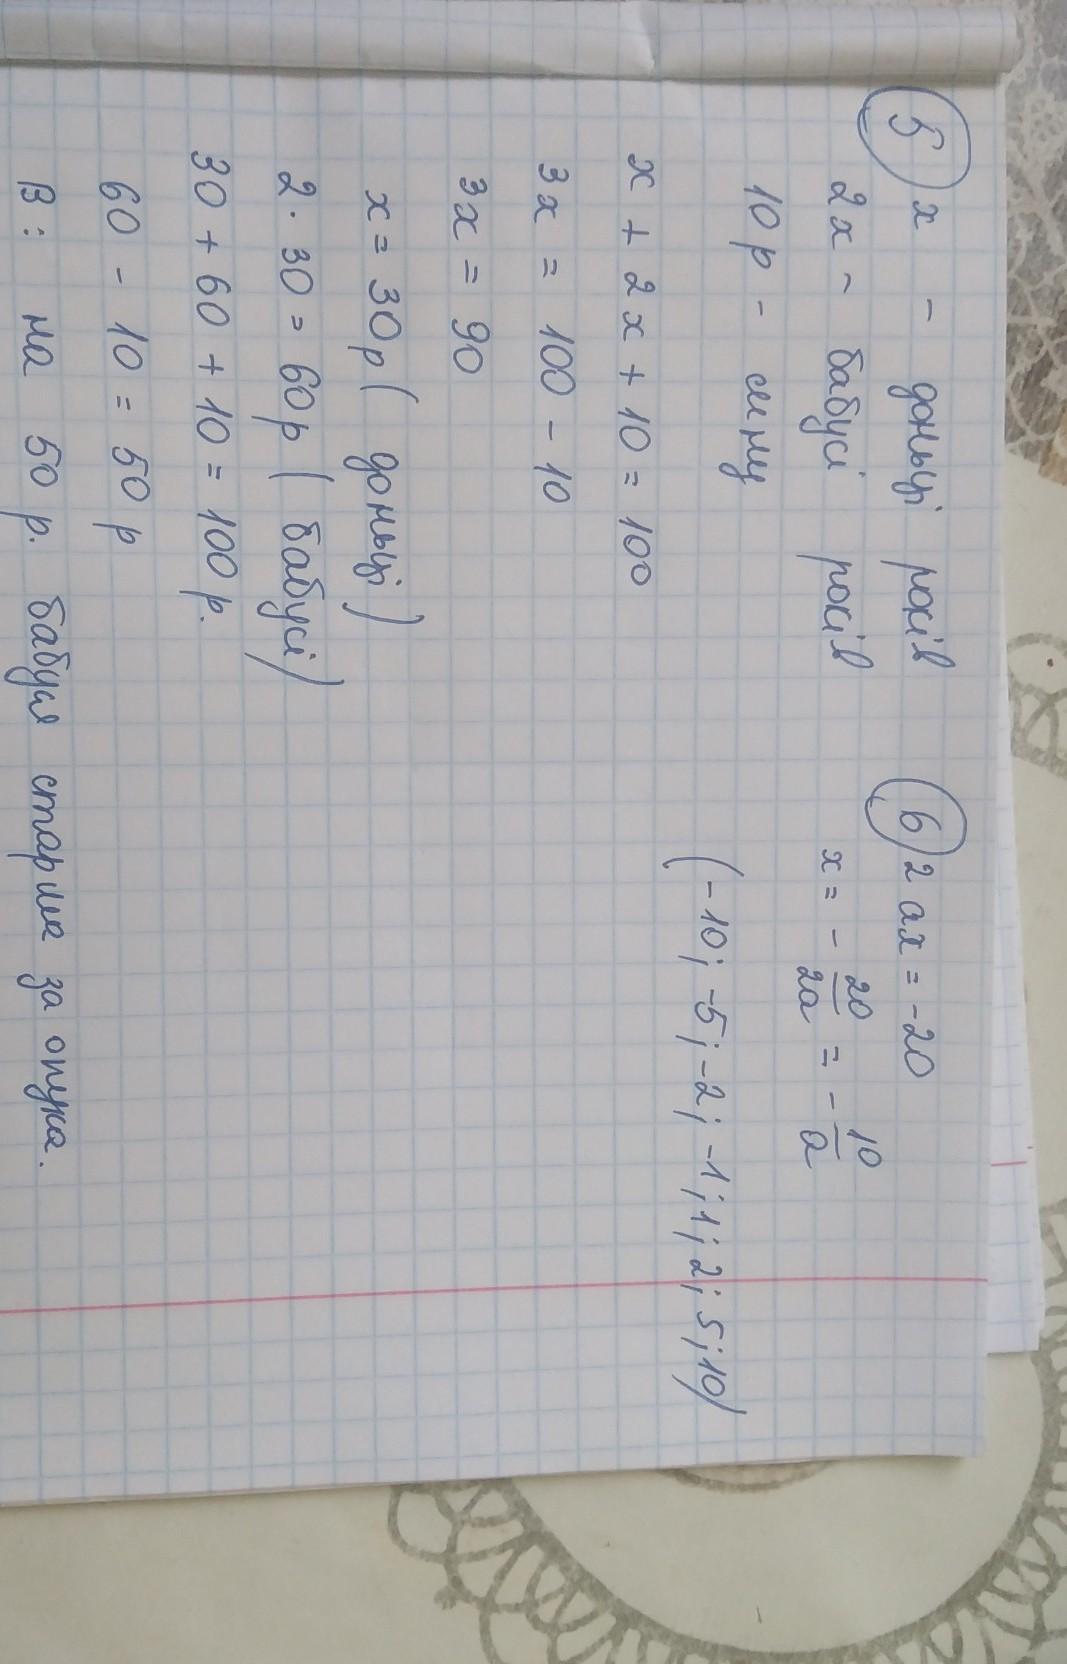 5 x - доньці років
2x - бабусі років
10 р - сину
x + 2x + 10 = 100
3x = 100 - 10
3x = 90
x = 30 р ( доньці)
2 · 30 = 60 р ( бабусі)
30 + 60 + 10 = 100 р.
60 - 10 = 50 р
В: на 50 р. бабуся старша за онука.
6 2 ax = -20
x = - 20/2a = - 10/a
(-10; -5; -2; -1; 1; 2; 5; 10)